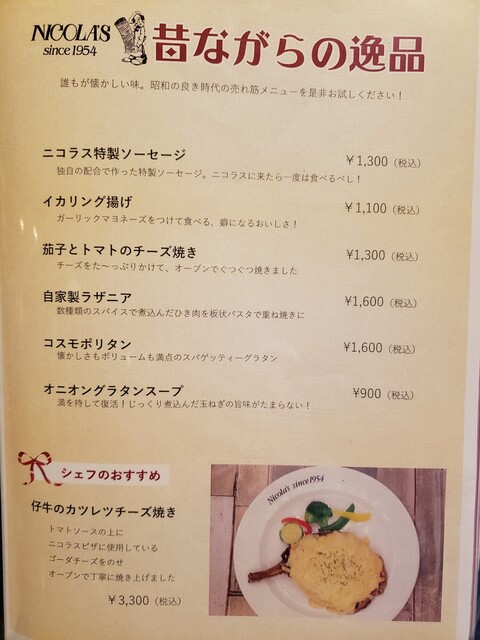 NICOLA'S
since 1954
昔ながらの逸品
誰もが懐かしい味。昭和の良き時代の売れ筋メニューを是非お試しください！
ニコラス特製ソーセージ ¥1,300（税込）
独自の配合で作った特製ソーセージ。ニコラスに来たら一度は食べるべし！
イカリング揚げ ¥1,100（税込）
ガーリックマヨネーズをつけて食べる、癖になるおいしさ！
茄子とトマトのチーズ焼き ¥1,300（税込）
チーズをた〜っぷりかけて、オーブンでぐつぐつ焼きました
自家製ラザニア ¥1,600（税込）
数種類のスパイスで煮込んだひき肉を板状パスタで重ね焼きに
コスモポリタン ¥1,600（税込）
懐かしさもボリュームも満点のスパゲッティーグラタン
オニオングラタンスープ ¥900（税込）
満を持して復活！じっくり煮込んだ玉ねぎの旨味がたまらない！
シェフのおすすめ
仔牛のカツレツチーズ焼き
トマトソースの上に
ニコラスピザに使用している
ゴーダチーズをのせ
オーブンで丁寧に焼き上げました
¥3,300（税込）
Nicola's since 1954